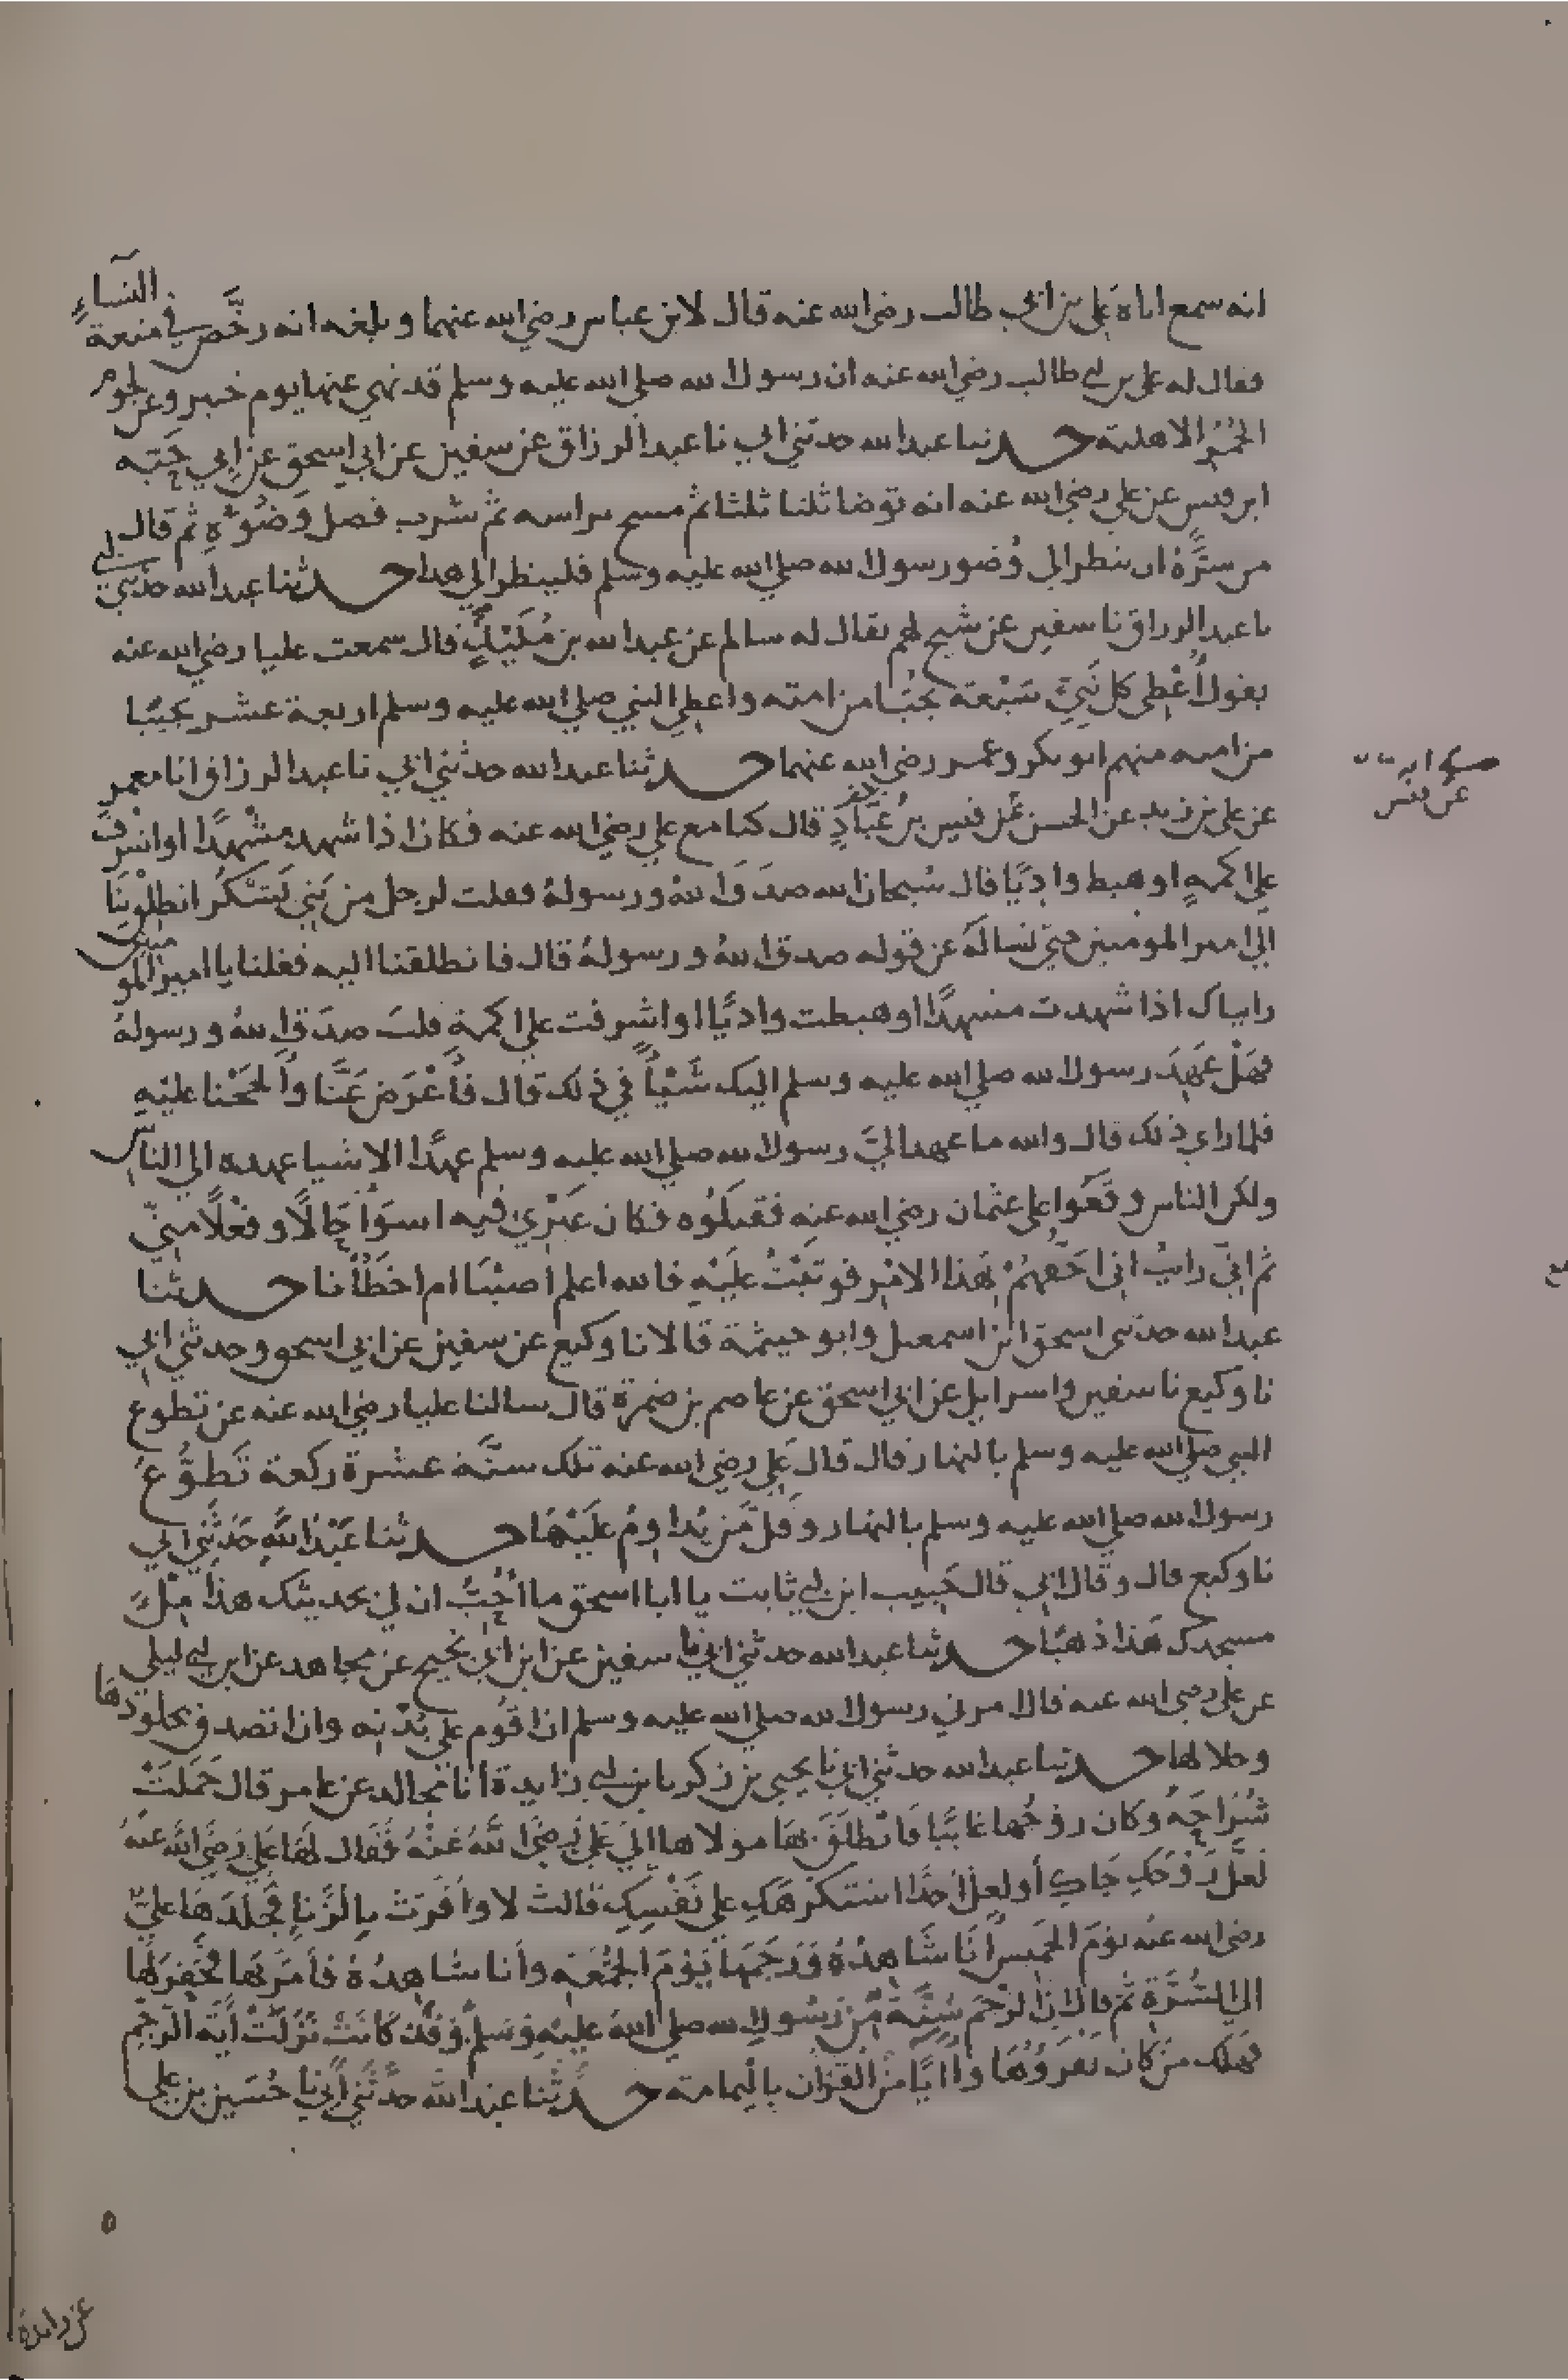 انه سمع اباه علي بن ابي طالب رضي الله عنه قال لابن عباس رضي الله عنهما وبلغه انه رخَّص في متعة النساءِ
فقال له علي بن ابي طالب رضي الله عنه ان رسول الله صلي الله عليه وسلم قد نهي عنها يوم خيبر وعن لحوم
الحُمُر الاهلية حدثنا عبد الله حدثني ابي نا عبد الرزاق عن سفين عن ابي اسحق عن ابي حَيّه
ابن قيس عن علي رضي الله عنه انه توضا ثلثا ثلثا ثم مسح براسه ثم شرب فضل وَضُوْءِهِ ثم قال
من سَرَّهُ ان ينظر الي وُضو رسول الله صلي الله عليه وسلم فلينظر الي هذا حدثنا عبد الله حدثني ابي
نا عبد الرزاق نا سفين عن شيخ لهم يقال له سالم عن عبد الله بن مُلَيْلٍ قال سمعت عليا رضي الله عنه
يقول اُعْطِي كل نَبِيّ سَبْعَة نجبا من امته واعطي النبي صلي الله عليه وسلم اربعة عشر نجيبًا
من امته منهم ابو بكر وعمر رضي الله عنهما حدثنا عبد الله حدثني ابي نا عبد الرزاق انا معمر
عن علي بن زيد عن الحسن عن قيس بن عُبَادٍ قال كنا مع علي رضي الله عنه فكان اذا شهد مَشْهدًا او اشرف
علي اكمهٍ او هبط واديًا قال سُبحان الله صدَقَ اللهُ ورسولهُ فقلت لرجل من بَنِي يَشْكُرَ انطلق بِنَا
الي امير المومنين حتي نسالَهُ عن قوله صدق اللهُ ورسولهُ قال فانطلقنا اليه فقلنا يا امير المومنين
رايناك اذا شهدت مشهدًا او هبطت واديًا او اشرفت علي اكمة قلتَ صدَق اللهُ ورسولهُ
فهَلْ عَهِدَ رسول الله صلي الله عليه وسلم اليك شَيْأً في ذلك قال فأَعْرَضَ عَنَّا وأَلْحَحْنا عليْهِ
فلما راي ذلك قال والله ما عهد اليَّ رسول الله صلي الله عليه وسلم عهدًا الا شيا عهده الي الناسِ
ولكن الناس وقَعُوا علي عثمان رضي الله عنه فقتلُوه فكان غيْرِي فيه اسوَأَ حَالًا وفعْلًا مِنّي
ثم انِّي رايتُ اني احَقّهُمْ بهذا الامْرِ فوثبْتُ عليْهِ فالله اعلم اصبْنا ام اخطَأْنا حدثنا
عبد الله حدثني اسحق ابن اسمعيل وابو خيثمة قالا نا وكيع عن سفين عن ابي اسحق وحدثني ابي
نا وكيع نا سفين واسرايل عن ابي اسحق عن عاصم بن ضمرة قال سالنا عليا رضي الله عنه عن تطوع
النبي صلي الله عليه وسلم بالنهار قال قال علي رضي الله عنه تلك ستَّة عشرة ركعة تَطوُّعَ
رسول الله صلي الله عليه وسلم بالنهار وقَلَّ مَن يُداوِمُ عليْهَا حدثنا عبْدُ اللَّهِ حَدثَنِي ابي
نا وكيع قال وقال ابي قال حَبِيب ابن ابي ثابت يا ابا اسحق ما اُحِبُّ ان لي بحديثك هذا مِلْءَ
مسجدك هَذا ذهبًا حدثنا عبد الله حدثني ابي نا سفين عن ابن ابي نجيح عن مجاهد عن ابن ابي ليلي
عن علي رضي الله عنه قال امرني رسول الله صلي الله عليه وسلم ان اقُوم علي بُدْنِه وان اتصدق بجلودها
وجلالها حدثنا عبد الله حدثني ابي نا يحيي بن زكريا بن ابي زايدة انا مجالد عن عامر قال حَمَلَتْ
شُرَاحَهُ وكان زوْجُها غايبًا فَانْطلَقَ بهَا مولاها اِلَي عَلي رَضِيَ اللَّهُ عَنْهُ فَقَال لهَا علي رَضِيَ اللَّه عنهُ
لعَلَّ زَوْجَكِ جَاكِ أو لعلّ احَدًا استكْرَهَكِ علي نَفْسِكِ قالتْ لا واَقَرتْ بالزِّنا فجلدَهَا عليٌّ
رضي الله عنه يوْمَ الخميس أنَا شَاهدُهُ وَرَجَمَهَا يَوْمَ الجمُعَه وأنا شاهِدُهُ فأَمَرَ بها فحُفِرَ لَها
الي السُّرَّةِ ثم قال ان الرَّجْمَ سُنَّةٌ مِّن رَسُولِ الله صلي اللهُ عليْهِ وَسَلم وقَدْ كانَتْ نَزَلَتْ أيَة الرَّجْم
فهَلَك من كان يقْرَؤُهَا واَايًا منَ القرْان باليمامة حدثنا عبْد اللَّه حدَّثَني أبي نا حُسَين بن علي
عن زايدة